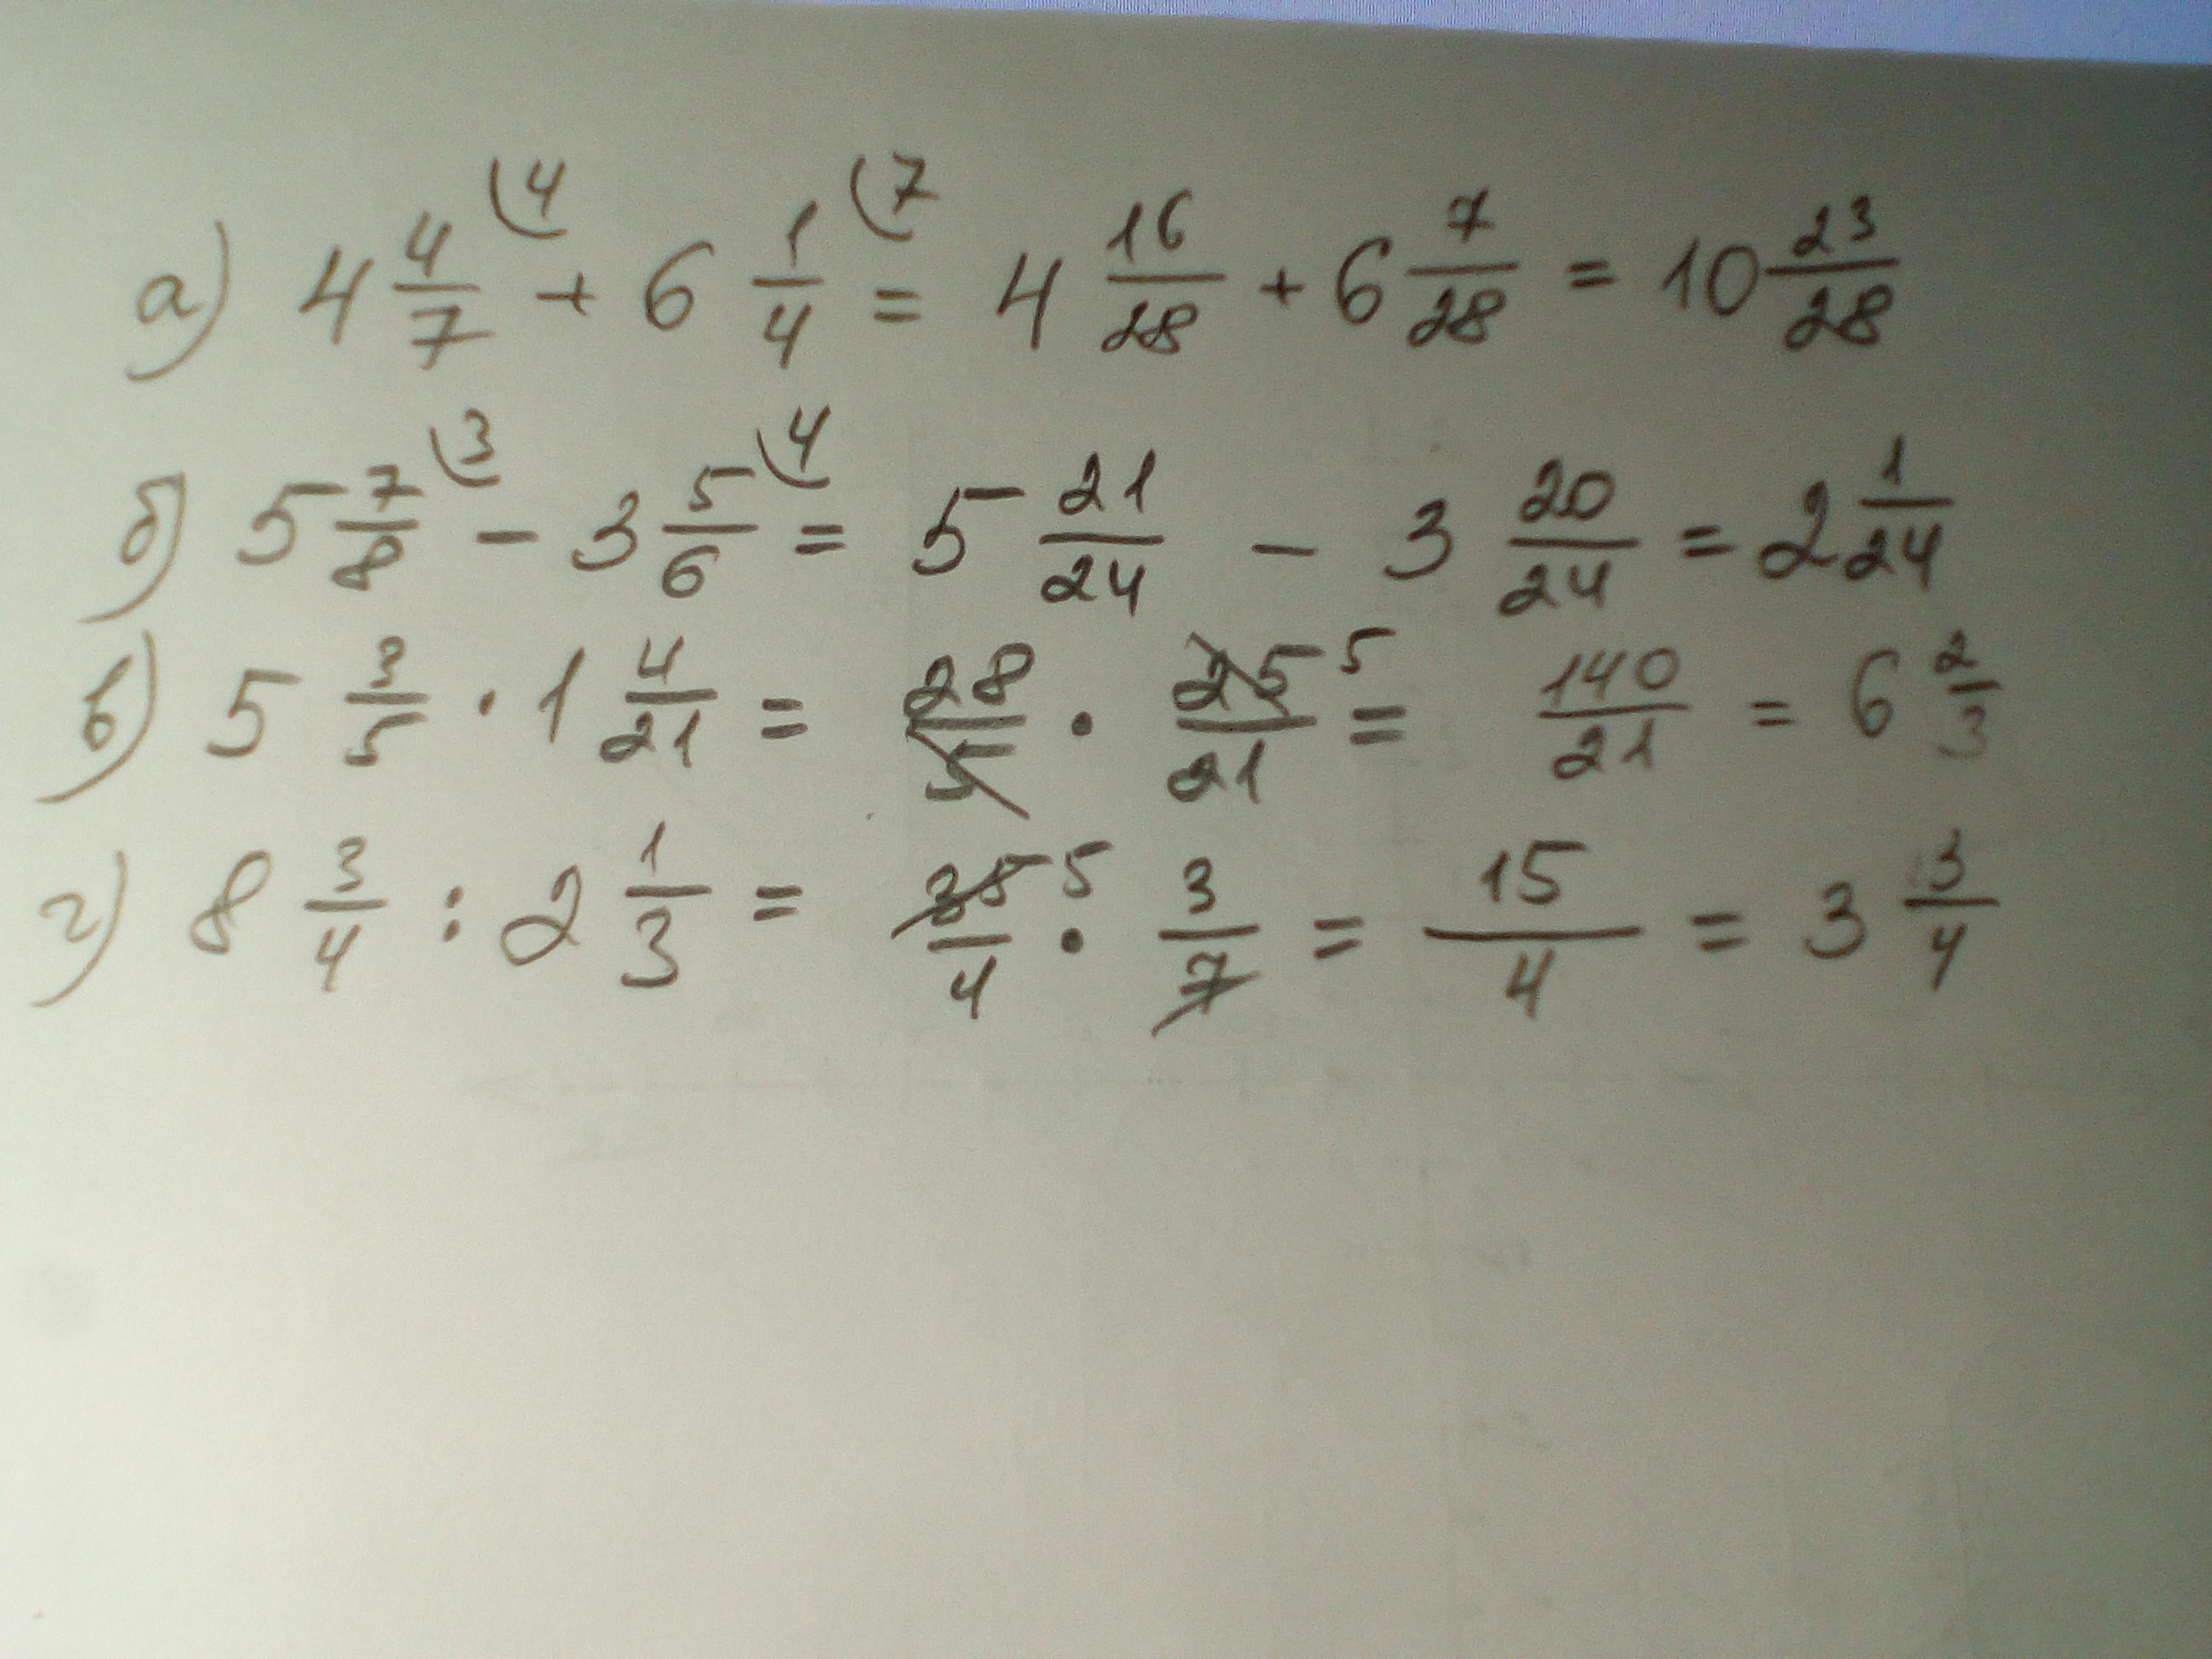 а) 4 4/7 (4 + 6 1/4 (7 = 4 16/28 + 6 7/28 = 10 23/28
б) 5 7/8 (3 - 3 5/6 (4 = 5 21/24 - 3 20/24 = 2 1/24
в) 5 3/5 · 1 4/21 = 28/5 · 25/21 5 = 140/21 = 6 2/3
г) 8 3/4 : 2 1/3 = 35/4 5 · 3/7 = 15/4 = 3 3/4